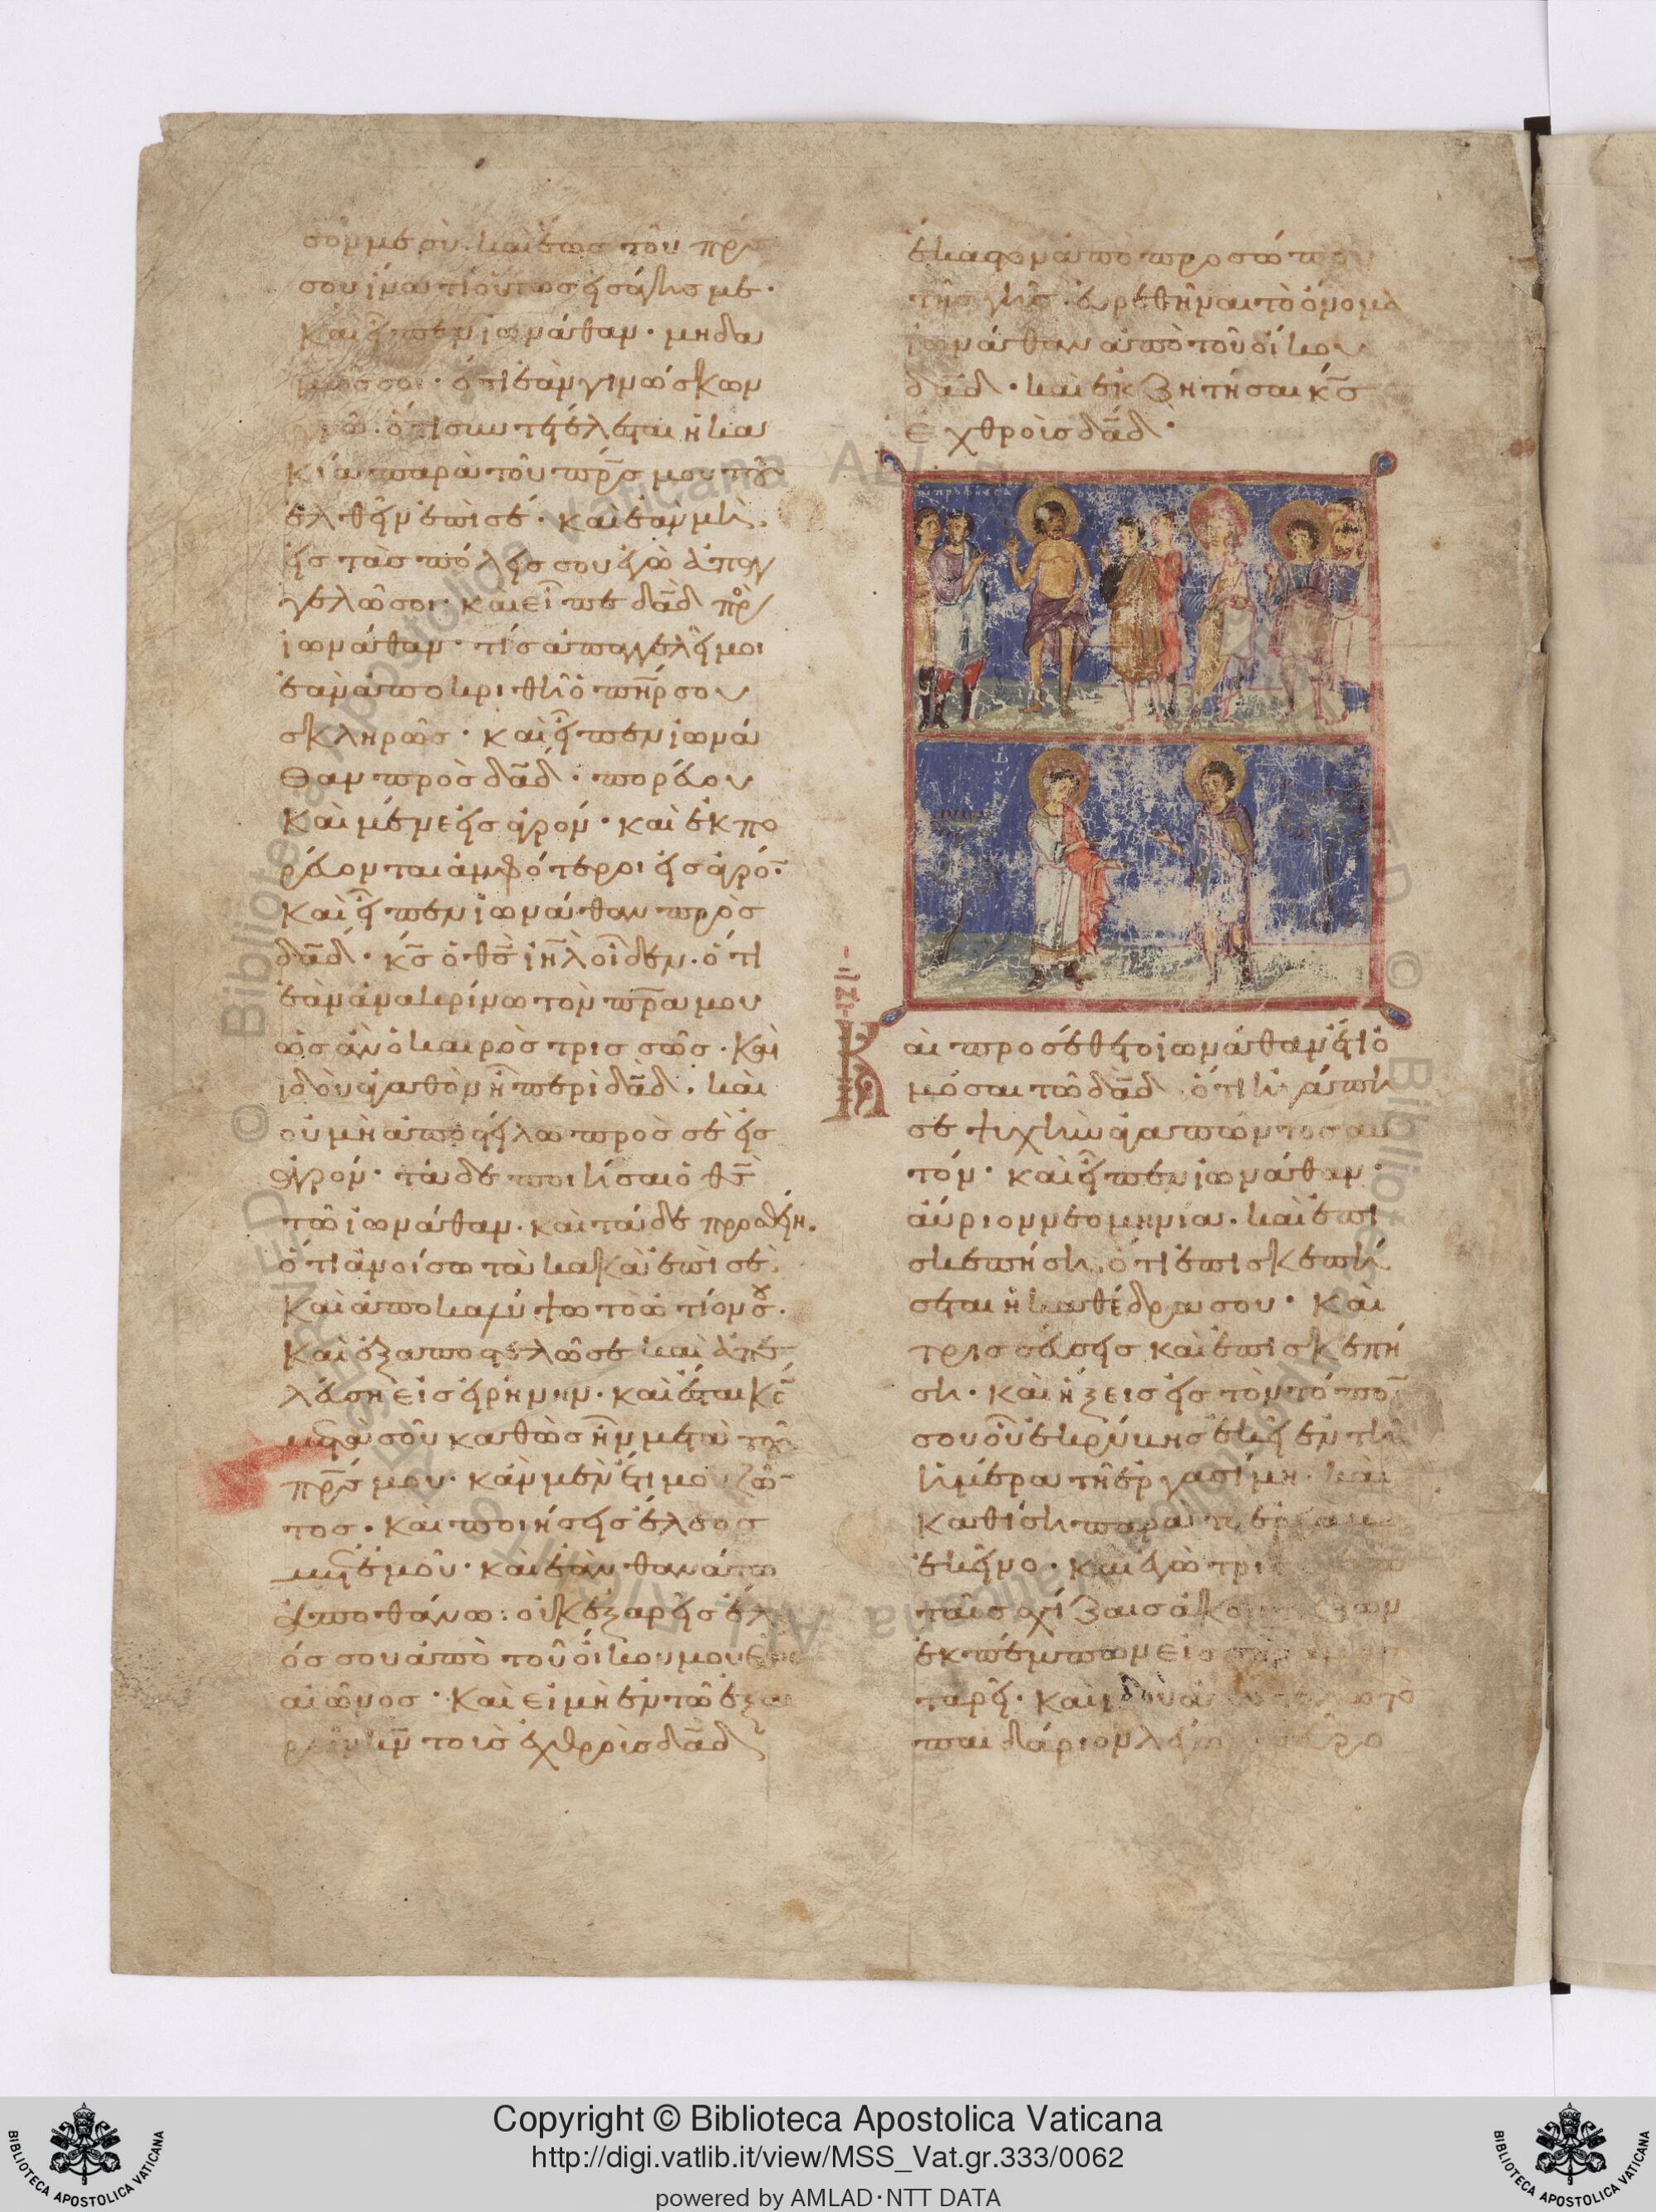 σου με σύ. καὶ ἕως τοῦ πρς
σου ἱνατί οὕτως εἰσάγεις με·
Καὶ εἶπεν ἰωνάθαν· μηδα
μῶς σοι· ὅτι ἐὰν γινώσκων
γνῶ· ὅτι συντετέλεσται ἡ κα
κία παρὰ τοῦ πρ̅ς μου τοῦ
ἐλθεῖν ἐπὶ σέ· καὶ ἐὰν μὴ
εἰς τὰς πόλεις σου ἐγὼ ἀπαγ
γελῶ σοι· καὶ εἶπε δα̅δ πρὸς
ἰωνάθαν· τίς ἀπαγγελεῖ μοι
ἐὰν ἀποκριθῆ ὁ πη̅ρ σου
σκληρῶς· καὶ εἶπεν ἰωνά
θαν πρὸς δα̅δ· πορεύου
καὶ μένε εἰς ἀγρόν· καὶ ἐκπο
ρεύονται ἀμφότεροι εἰς ἀγρό̅·
Καὶ εἶπεν ἰωνάθαν πρὸς
δα̅δ· κ̅ς ὁ θ̅ς ἰη̅λ οἶδεν· ὅτι
ἐὰν ἀνακρίνω τὸν πρ̅α μου
ὡς ἂν ὁ καιρὸς τρισσῶς· Καὶ
ἰδοὺ ἀγαθὸν ἦ περὶ δα̅δ· καὶ
οὐ μὴ ἀποστείλω πρὸς σὲ εἰς
ἀγρόν· τάδε ποιήσαι ὁ θ̅ς
τῶ ἰωνάθαν· καὶ τάδε προσθείη·
ὅτι ἀνοίσω τὰ κακὰ ἐπὶ σέ·
Καὶ ἀποκαλύψω τὸ ὠτίον σου·
Καὶ ἐξαποστελῶ σε καὶ ἀπε
λεύση εἰς εἰρήνην· καὶ ἔσται κ̅ς
μετὰ σοῦ καθὼς ἦν μετὰ τοῦ
πρ̅ς μου· κἂν μὲν ἔτι μου ζῶ̅
τος· καὶ ποιήσεις ἔλεος
μετ' ἐμοῦ· καὶ ἐὰν θανάτω
ἀποθάνω· οὐκ ἐξαρεῖς ἔλε
ός σου ἀπὸ τοῦ οἴκου μου ἕως
αἰῶνος· Καὶ εἰ μὴ ἐν τῶ ἐξαι
ρεῖν κ̅ν τοὺς ἐχθροὺς δα̅δ
ἕκαστον ἀπὸ προσώπου
τῆς γῆς· εὑρεθῆναι τὸ ὄνομα
ἰωνάθαν ἀπὸ τοῦ οἴκου
δα̅δ· καὶ ἐκζητήσαι κ̅ς
ἐχθροὺς δα̅δ·
Καὶ προσέθετο ἰωνάθαν ἔτι ὀ
μόσαι τῶ δα̅δ· ὅτι ἠγάπη
σε ψυχὴν ἀγαπῶντος αὐ
τόν· καὶ εἶπεν ἰωνάθαν·
αὔριον νεομηνία· καὶ ἐπι
σκεπήση· ὅτι ἐπισκεπή
σεται ἡ καθέδρα σου· Καὶ
τρισσεύσεις καὶ ἐπισκεπή
ση· καὶ ἥξεις εἰς τὸν τόπο̅
σου οὗ ἐκρύβης ἐκεῖ ἐν τῆ
ἡμέρα τῆ ἐργασίμη· καὶ
καθίση παρὰ τὸ
ἐκεῖνο· καὶ ἐγὼ τρισ
ταῖς σχίζαις ἀκοντίζων
ἐκπέμπων εἰς
ταρεῖ· καὶ ἰδοὺ ἀποστελῶ τὸ
παιδάριον λέγων
Copyright © Biblioteca Apostolica Vaticana
http://digi.vatlib.it/view/MSS_Vat.gr.333/0062
powered by AMLAD·NTT DATA